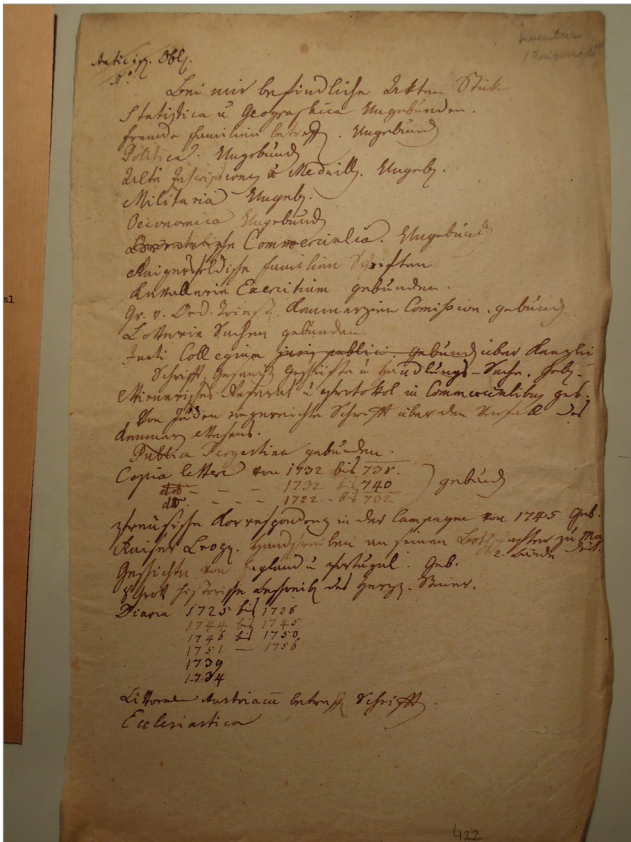 Inventar
Anticip. Obl.
N°
Bei mir befindliche Akten Stük
Statistica u Geographica Ungebunden.
fremde familien betreff. Ungebund
Politica. Ungebund
Alte Inscriptiones u Medaill. Ungeb.
Militaria Ungeb.
Oeconomica Ungebund
Commercialia. Ungebund
familien Schriften
Kavallerie Exercitium gebunden.
Gr. v. Ord. Triest. Kommerzien Comission. gebund
Lotterie Sachen gebunden
Collegium juris publici gebund über Kanzlei
Schrift, Gesandt Geschäfte u Handlungs-Sache. Geb.
Referat u Protokol in Commercialibus geb.
Von Juden eingereichte Schrift über den Verfall des
Kammer Wesens.
Publica gebunden.
Copia lettere von 1732 bis 738.
dto - - - 1732 bis 740 gebund
do. - - - 1722 - bis 732
Korrespondenz in der Campagne von 1745 Geb.
Kaiser Leop. Handschreiben an seinen Bottschafter zu Madrit.
2. Bände
Geschichte von England u Portugal. Geb.
historische Beschreib des Herzg.
Diaria 1725 bis 1726
1744 bis 1745
1746 bis 1750
1751 — 1756
1739
1734
Littorale Austriacum betreff. Schrift.
Ecclesiastica
422